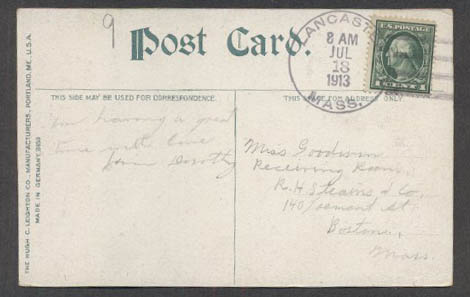 9
Post Card.
LANCASTER
8 AM
JUL
18
1913
MASS.
U.S. POSTAGE
1 CENT 1
THIS SIDE MAY BE USED FOR CORRESPONDENCE.
THIS SIDE FOR ADDRESS ONLY.
having a great
time with love
Dorothy
Miss Goodwin
Receiving Room
R.H. Stearns & Co.
140 Tremont St
Boston,
Mass.
THE HUGH C. LEIGHTON CO., MANUFACTURERS, PORTLAND, ME., U.S.A.
MADE IN GERMANY.